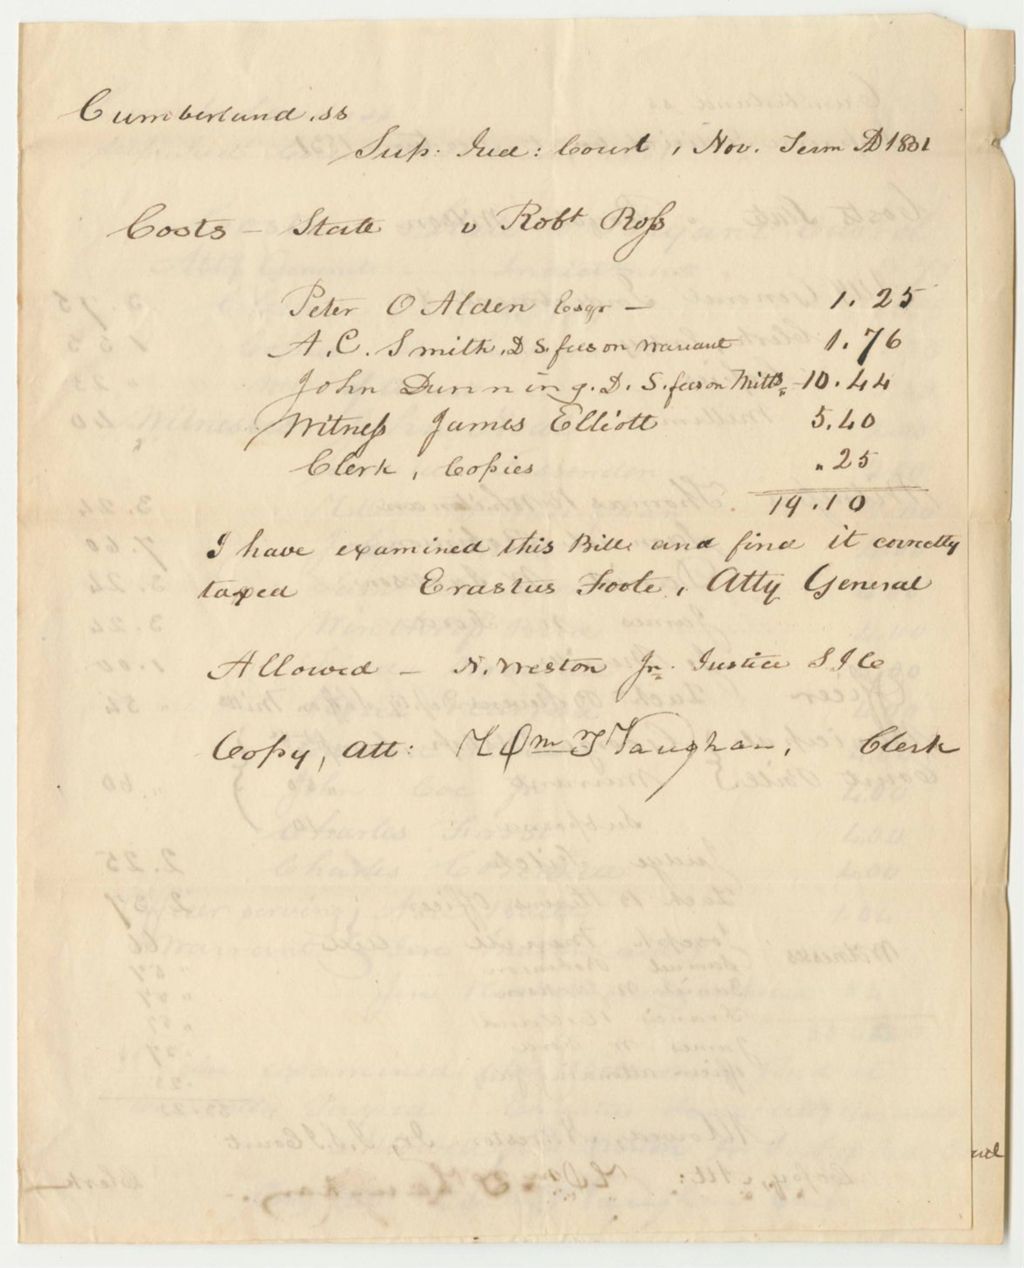 Cumberland, ss
Sup: Jud: Court, Nov. Term AD 1831
Costs – State v Robt Ross
Peter O Alden Esqr – 1.25
A. C. Smith, D S. fees on warrant 1.76
John Dunning. D. S. fees on Mitts – 10.44
Witness James Elliott 5.40
Clerk, Copies " 25
19.10
I have examined this Bill and find it correctly
taxed Erastus Foote, Atty General
Allowed – N. Weston Jr. Justice S J Co
Copy, Att: Wm T Vaughan, Clerk